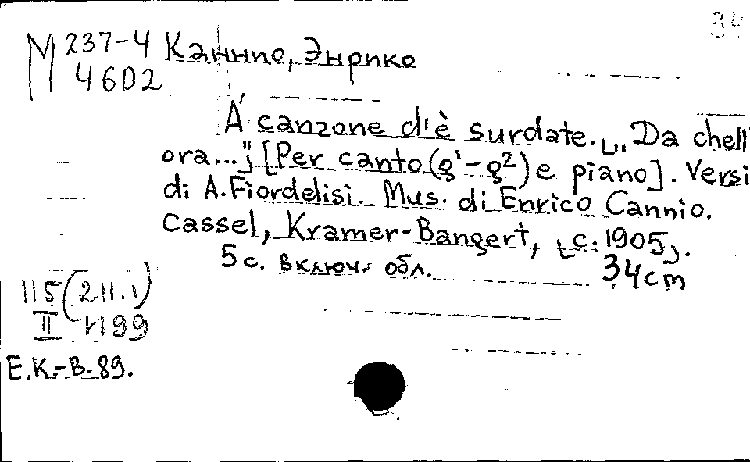 34
М 237-4 Каннио, Энрико
4602
A' canzone d'è surdate. [„Da chell'
ora..." [Per canto (g¹-g²) e piano]. Versi
di A. Fiordelisi. Mus. di Enrico Cannio.
Cassel, Kramer-Bangert, [c. 1905].
5 с. включ. обл. 34 cm
115 (211.1)
II 4199
Е.К.-В-89.